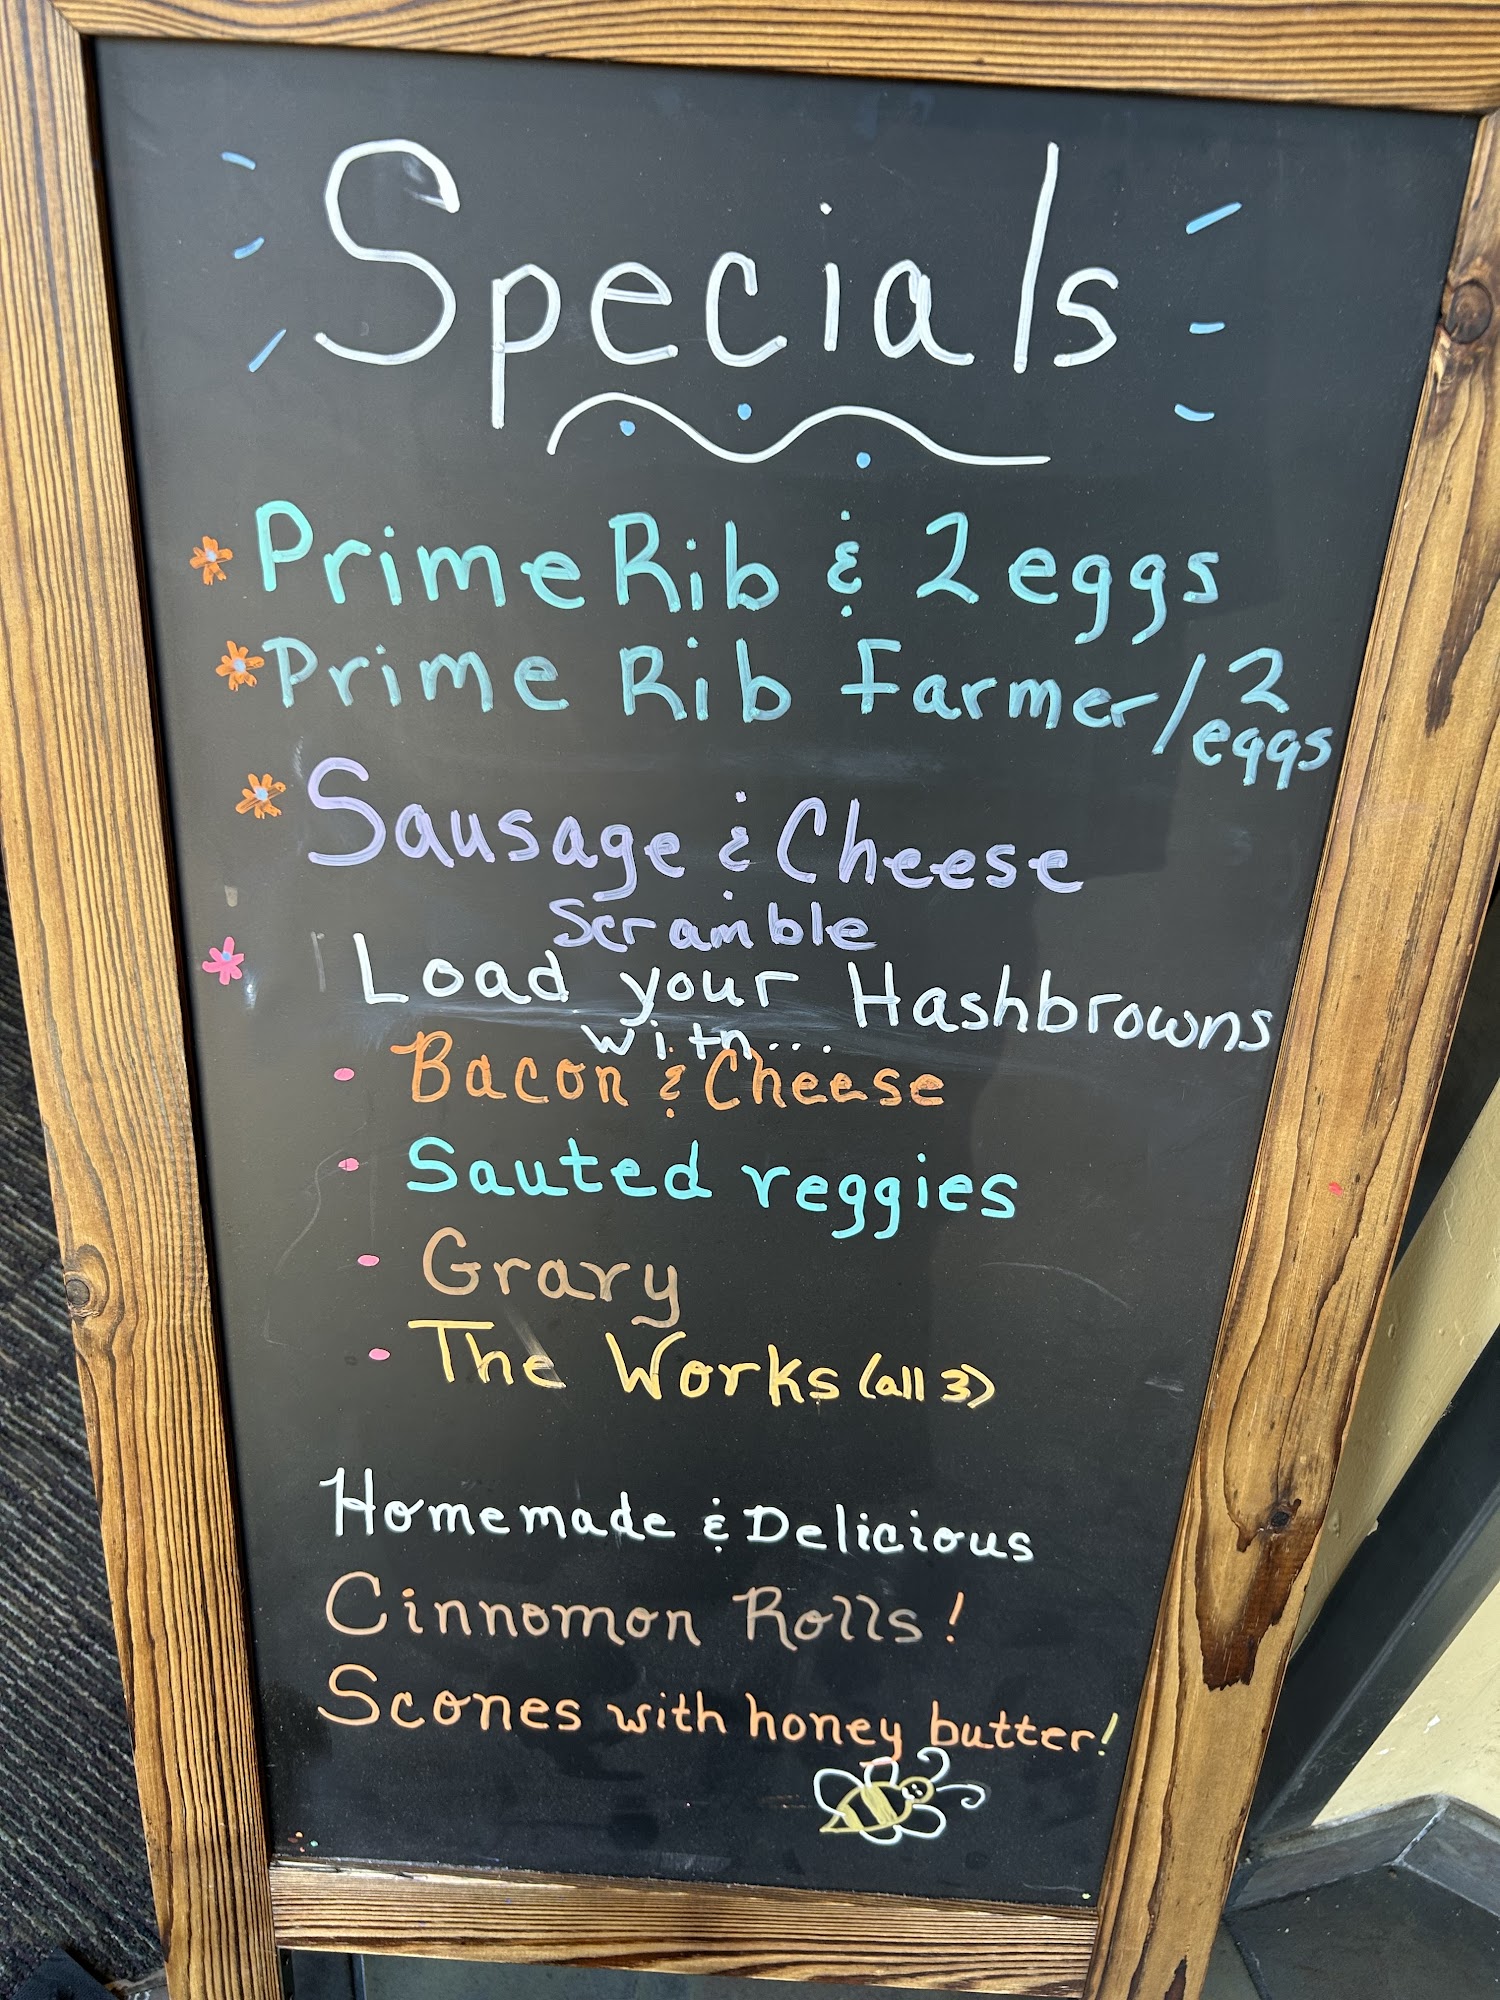 Specials
Prime Rib & 2 eggs
Prime Rib Farmer / 2 eggs
Sausage & Cheese
Scramble
Load your Hashbrowns
with...
Bacon & Cheese
Sauted veggies
Gravy
The Works (all 3)
Homemade & Delicious
Cinnomon Rolls!
Scones with honey butter!